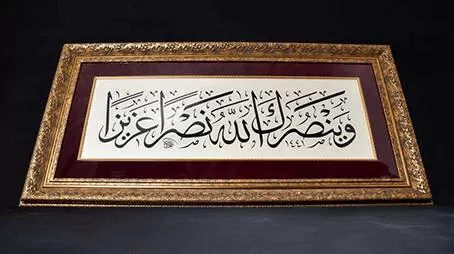 وَيَنْصُرَكَ اللّٰهُ نَصْرًا عَزِيزًا
١٤٤١